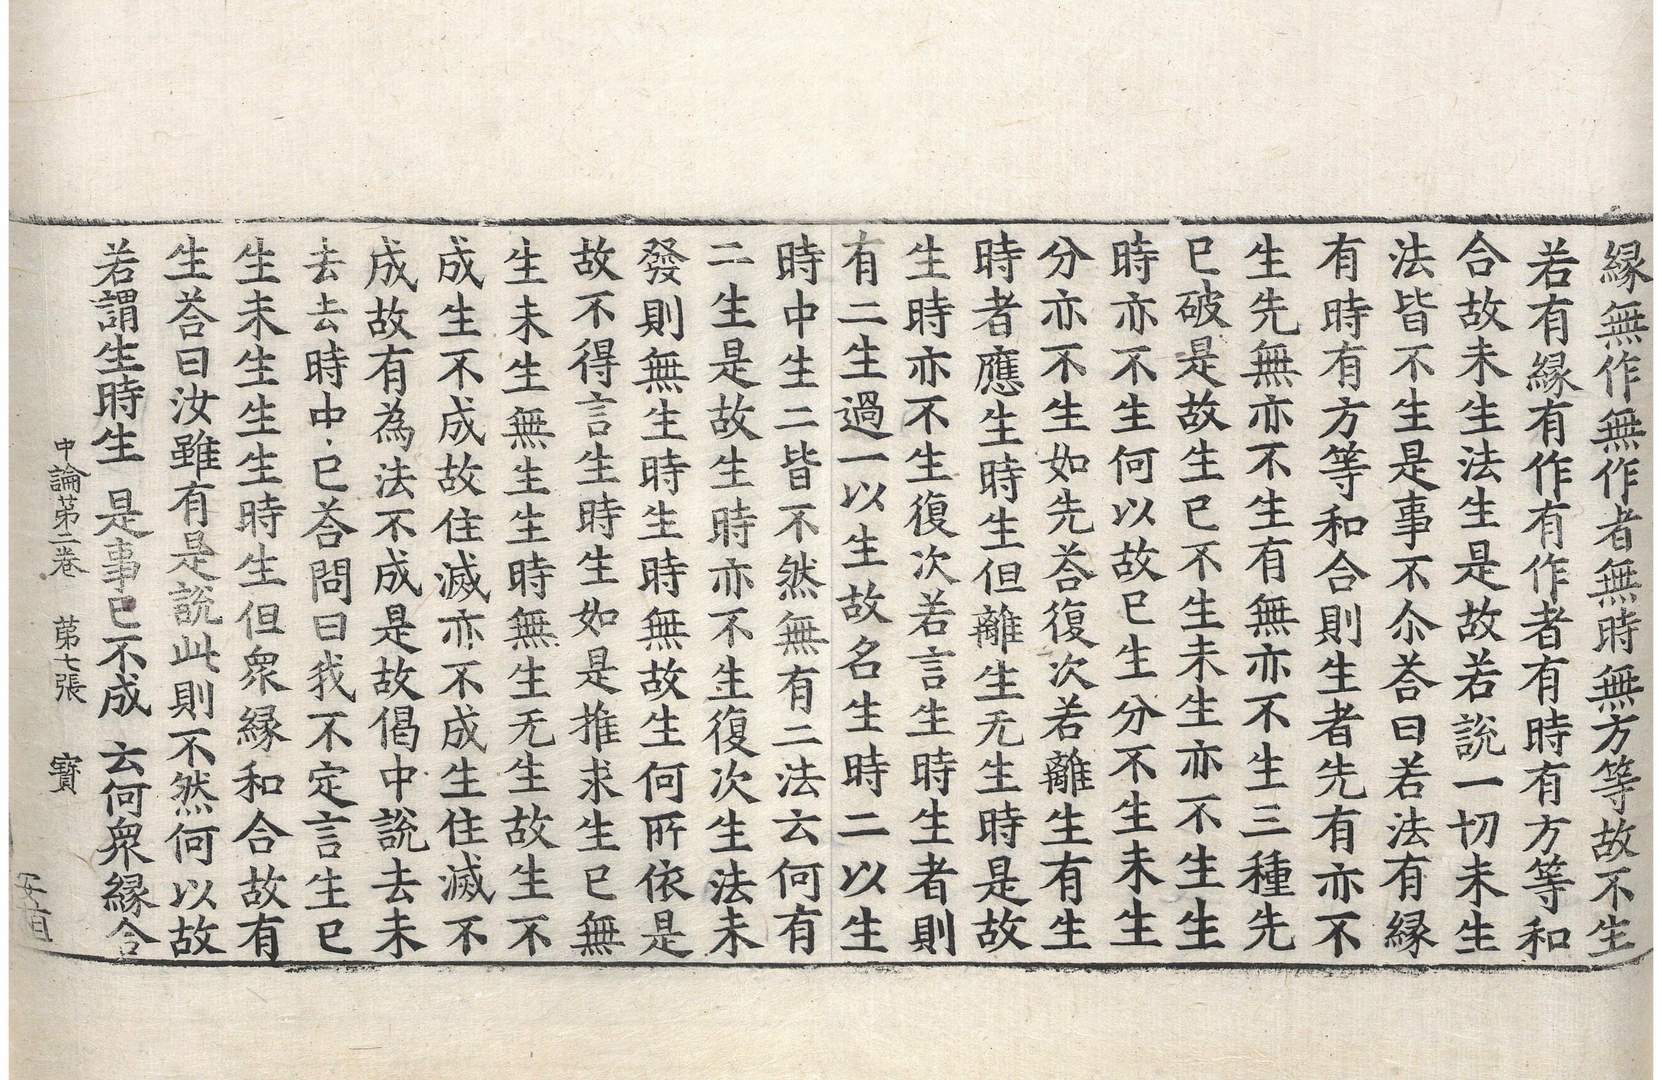 縁無作無作者無時無方等故不生
若有縁有作有作者有時有方等和
合故未生法生是故若說一切未生
法皆不生是事不尒荅曰若法有縁
有時有方等和合則生者先有亦不
生先無亦不生有無亦不生三種先
已破是故生已不生未生亦不生生
時亦不生何以故已生分不生未生
分亦不生如先荅復次若離生有生
時者應生時生但離生无生時是故
生時亦不生復次若言生時生者則
有二生過一以生故名生時二以生
時中生二皆不然無有二法云何有
二生是故生時亦不生復次生法未
發則無生時生時無故生何所依是
故不得言生時生如是推求生已無
生未生無生生時無生无生故生不
成生不成故住滅亦不成生住滅不
成故有為法不成是故偈中說去未
去去時中已荅問曰我不定言生已
生未生生生時生但衆縁和合故有
生荅曰汝雖有是說此則不然何以故
若謂生時生 是事已不成 云何衆縁合
中論第二卷 第七張 寳